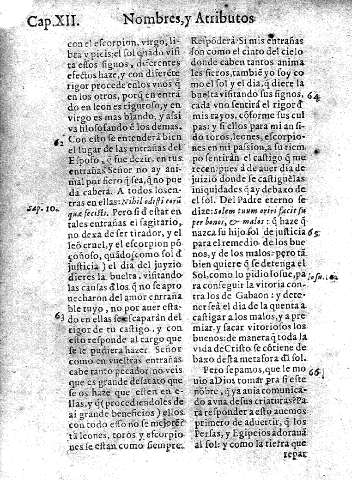 Cap.XII. Nombres, y Atributos
con el escorpion, virgo, li-
bra y picis; el sol quãdo visi
ta essos signos, diferentes
efectos haze, y con diferẽte
rigor procede en los vnos q̃
en los otros, porq̃ en entrã
do en leon es riguroso, y en
virgo es mas blando, y assi
va filosofando ẽ los demas.
62
Con esto se entenderá bien
el lugar de las entrañas del
Esposo, q̃ fue dezir, en tus
entrañas Señor no ay ani
mal por fiero q̃ sea, q̃ no pue
da caber. A todos los en-
tras en ellas: Nihil odisti eorũ
Sap. 10.
quæ fecisti. Pero si de estar en
tales entrañas el sagitario,
no dexa de ser tirador, y el
leõ cruel, y el escorpion põ
çoñoso, quãdo (como sol d
justicia) el dia del juyzio
dieres la buelta, visitando
las causas d los q̃ no se apro
uecharon del amor entrañа
ble tuyo, no por auer esta-
do en ellas se escaparán del
63
rigor de tu castigo, y con
esto responde al cargo que
se le pudiera hazer. Señor
como en vuestras entrañas
cabe tanto pecador, no veis
que es grande desacato que
se os haze que esten en e-
llas, y q̃ (procediendoles de
ai grande beneficios) ellos
con todo esso no se mejorẽ
tã leones, toros y escorpio
nes se estan como siempre.
Responderà: Si mis entrañas
son como el cinto del cielo
donde caben tantos anima
les fieros, tambiẽ yo soy co
mo el sol y el dia, q̃ diere la
buelta visitando sus signos,
64
cada vno sentirá el rigor d
mis rayos, cõforme sus cul
pas: y si ellos para mi an si-
do toros, leones, escorpio-
nes en mi passion, a su tiem
po sentirán el castigo q̃ me
recen pues á de auer dia de
juizio donde se castiguẽ las
iniquidades q̃ ay debaxo de
el sol. Del Padre eterno se
dize: Solem suum oriri facit su
per bonos, & malos: q̃ haze q̃
nazca su hijo sol de justicia
65
para el remedio de los bue
nos, y de los malos: pero tã
bien quiere q̃ se detenga el
Sol, como lo pidio Iosue, pa
Iosu. 10.
ra conseguir la vitoria con-
tra los de Gabaon: y dete-
ner se á el dia de la quenta a
castigar a los malos, y a pre
miar, y sacar vitoriosos los
buenos: de manera q̃ toda la
vida de Cristo se cõtiene de
baxo desta metafora dl sol.
Pero sepamos, que le mo
66
uio a Dios tomar pra si este
nõbre, q̃ ya auia comunica-
do a vna de sus criaturas? Pa
ra responder a esto auemos
primero de aduertir, q̃ los
Persas, y Egipcios adorauã
al sol: y como la tierra que
repar